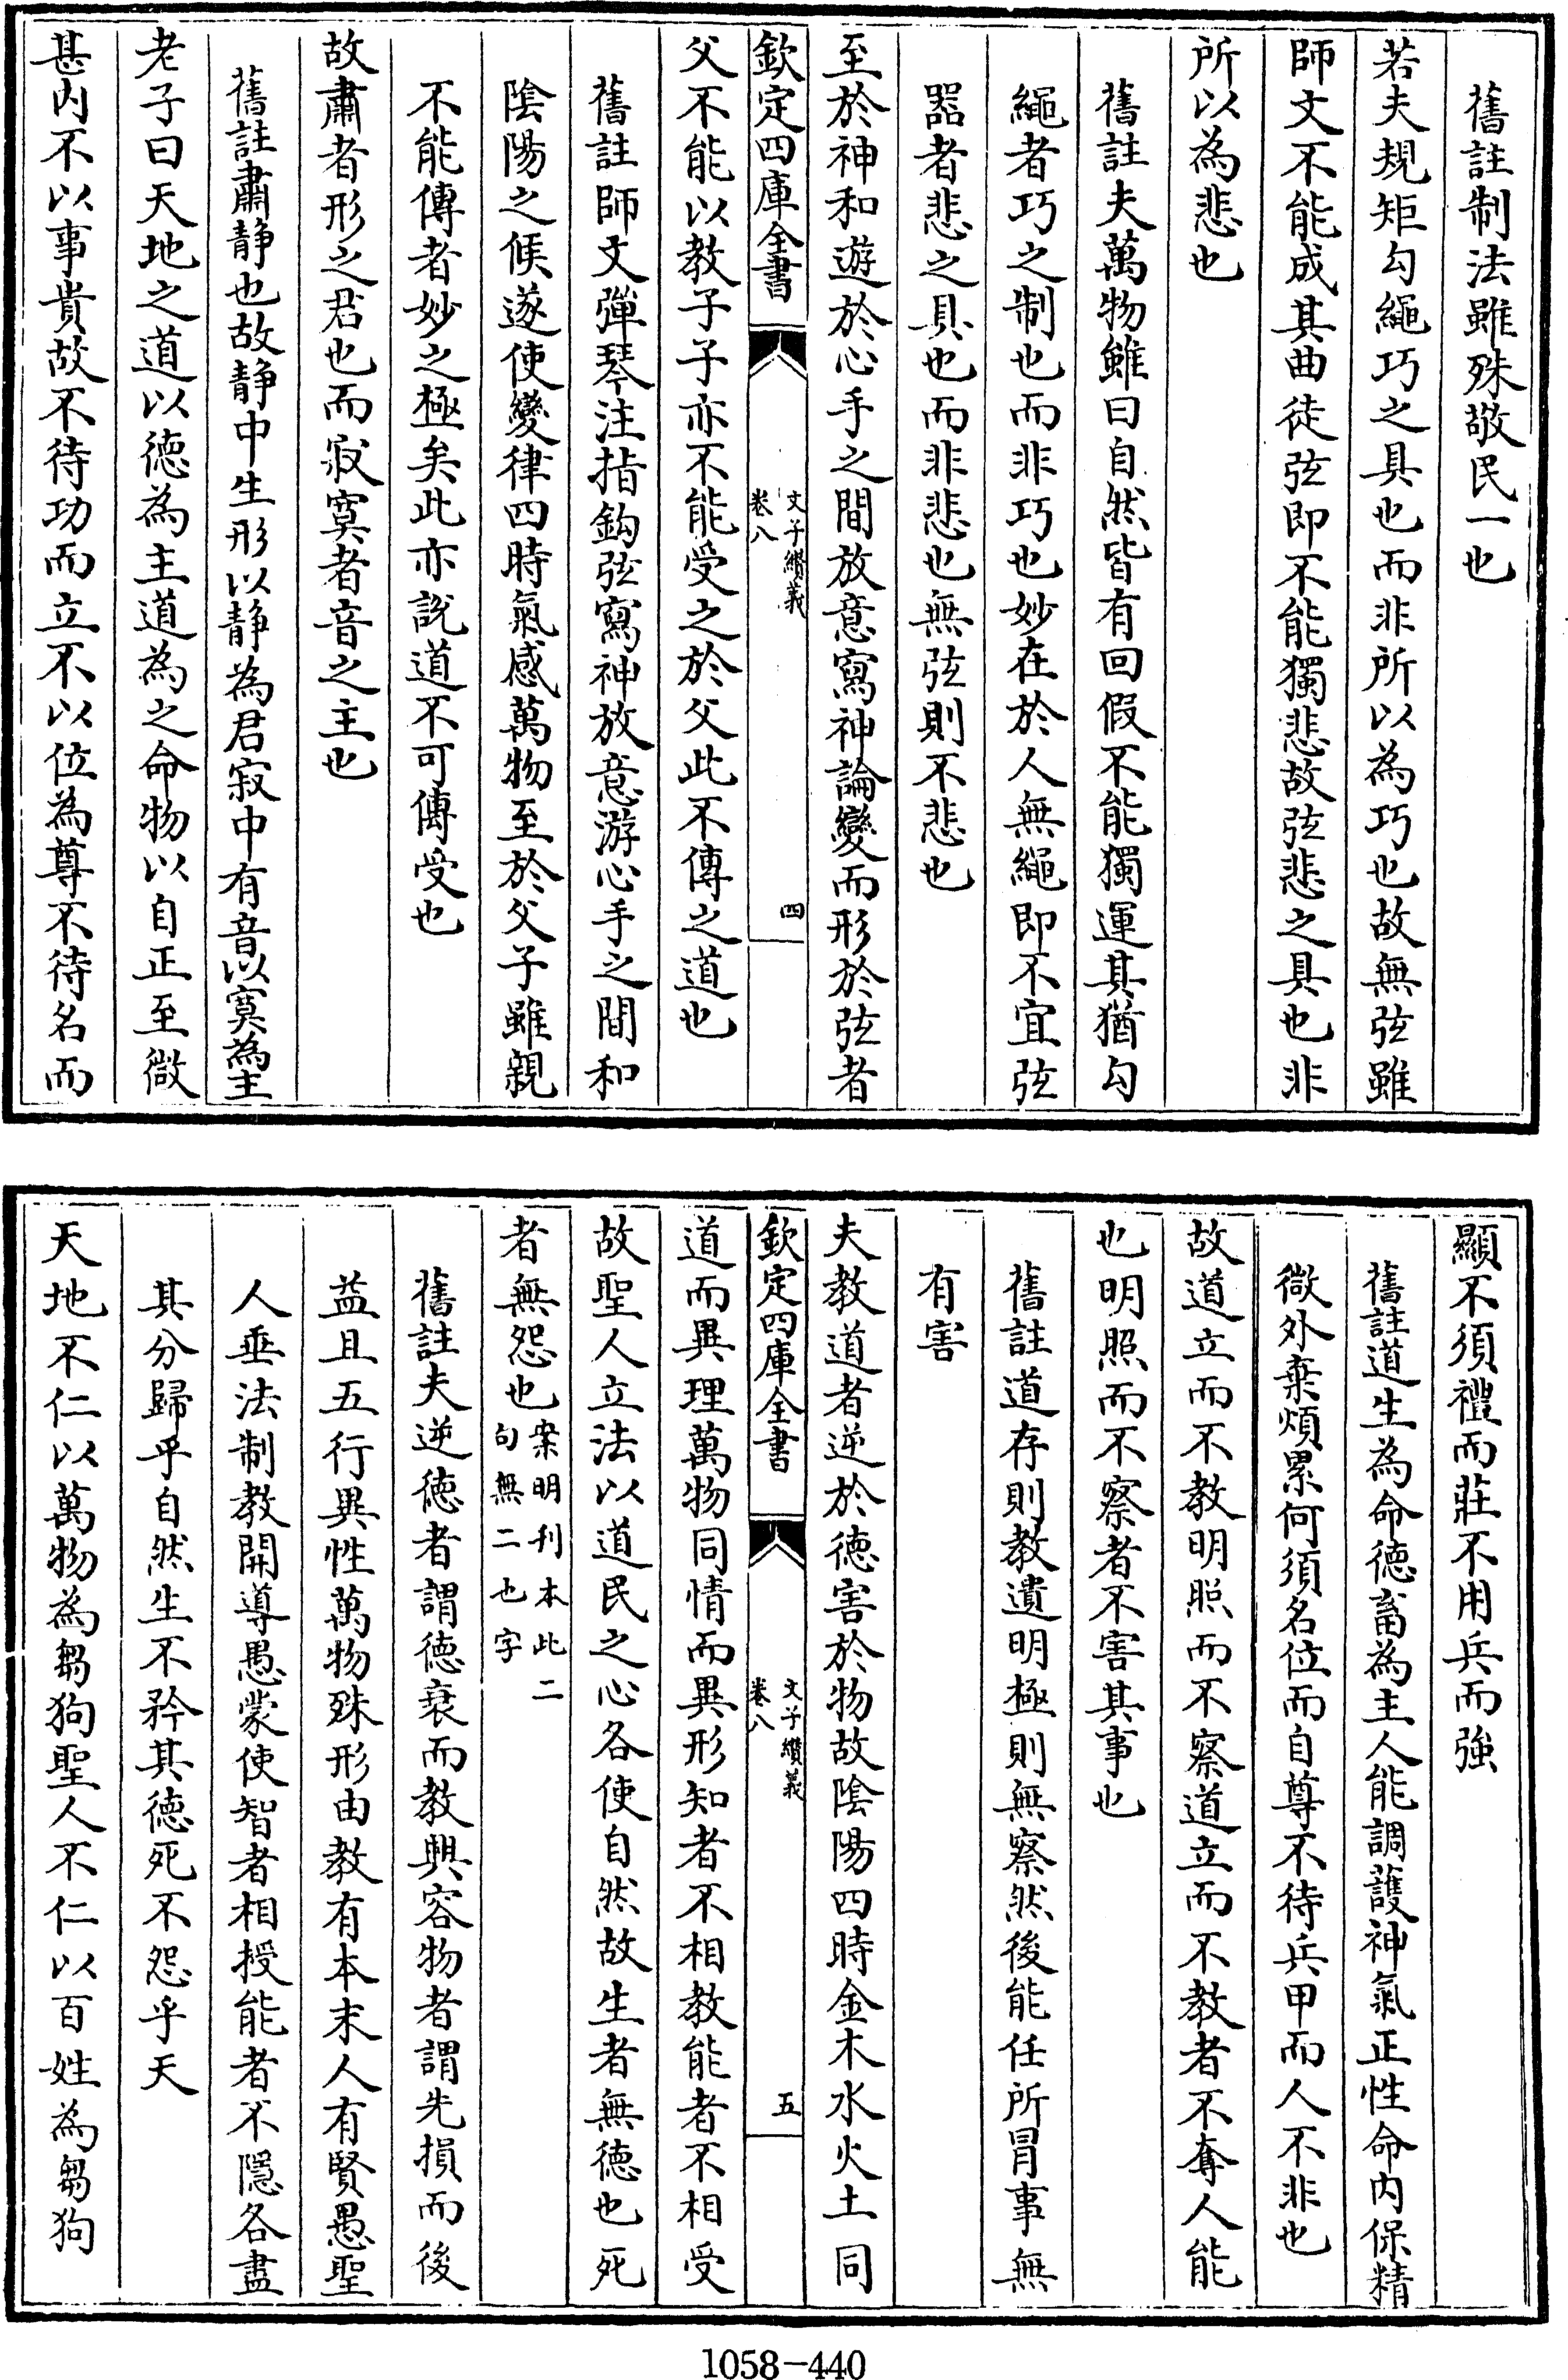 舊註制法雖殊敬民一也
若夫規矩勾繩巧之具也而非所以為巧也故無弦雖
師文不能成其曲徒弦即不能獨悲故弦悲之具也非
所以為悲也
舊註夫萬物雖曰自然皆有回假不能獨運其猶勾
繩者巧之制也而非巧也妙在於人無繩即不宜弦
器者悲之具也而非悲也無弦則不悲也
至於神和遊於心手之間放意寫神論變而形於弦者
欽定四庫全書 文子纘義 卷八 四
父不能以教子子亦不能受之於父此不傳之道也
舊註師文彈琴注指鈎弦寫神放意游心手之間和
陰陽之候遂使變律四時氣感萬物至於父子雖親
不能傳者妙之極矣此亦說道不可傳受也
故肅者形之君也而寂寞者音之主也
舊註肅靜也故靜中生形以靜為君寂中有音以寞為主
老子曰天地之道以德為主道為之命物以自正至微
甚內不以事貴故不待功而立不以位為尊不待名而
顯不須禮而莊不用兵而強
舊註道生為命德畜為主人能調護神氣正性命內保精
微外棄煩累何須名位而自尊不待兵甲而人不非也
故道立而不教明照而不察道立而不教者不奪人能
也明照而不察者不害其事也
舊註道存則教遺明極則無察然後能任所冒事無
有害
夫教道者逆於德害於物故陰陽四時金木水火土同
欽定四庫全書 文子纘義 卷八 五
道而異理萬物同情而異形知者不相教能者不相受
故聖人立法以道民之心各使自然故生者無德也死
者無怨也案明刊本此二句無二也字
舊註夫逆德者謂德衰而教興容物者謂先損而後
益且五行異性萬物殊形由教有本末人有賢愚聖
人垂法制教開導愚蒙使智者相授能者不隱各盡
其分歸乎自然生不矜其德死不怨乎天
天地不仁以萬物為芻狗聖人不仁以百姓為芻狗
1058-440